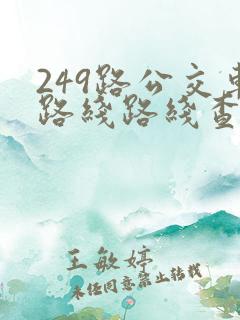 249路公交车
路线路线查
王敏婷
未经同意禁止转载